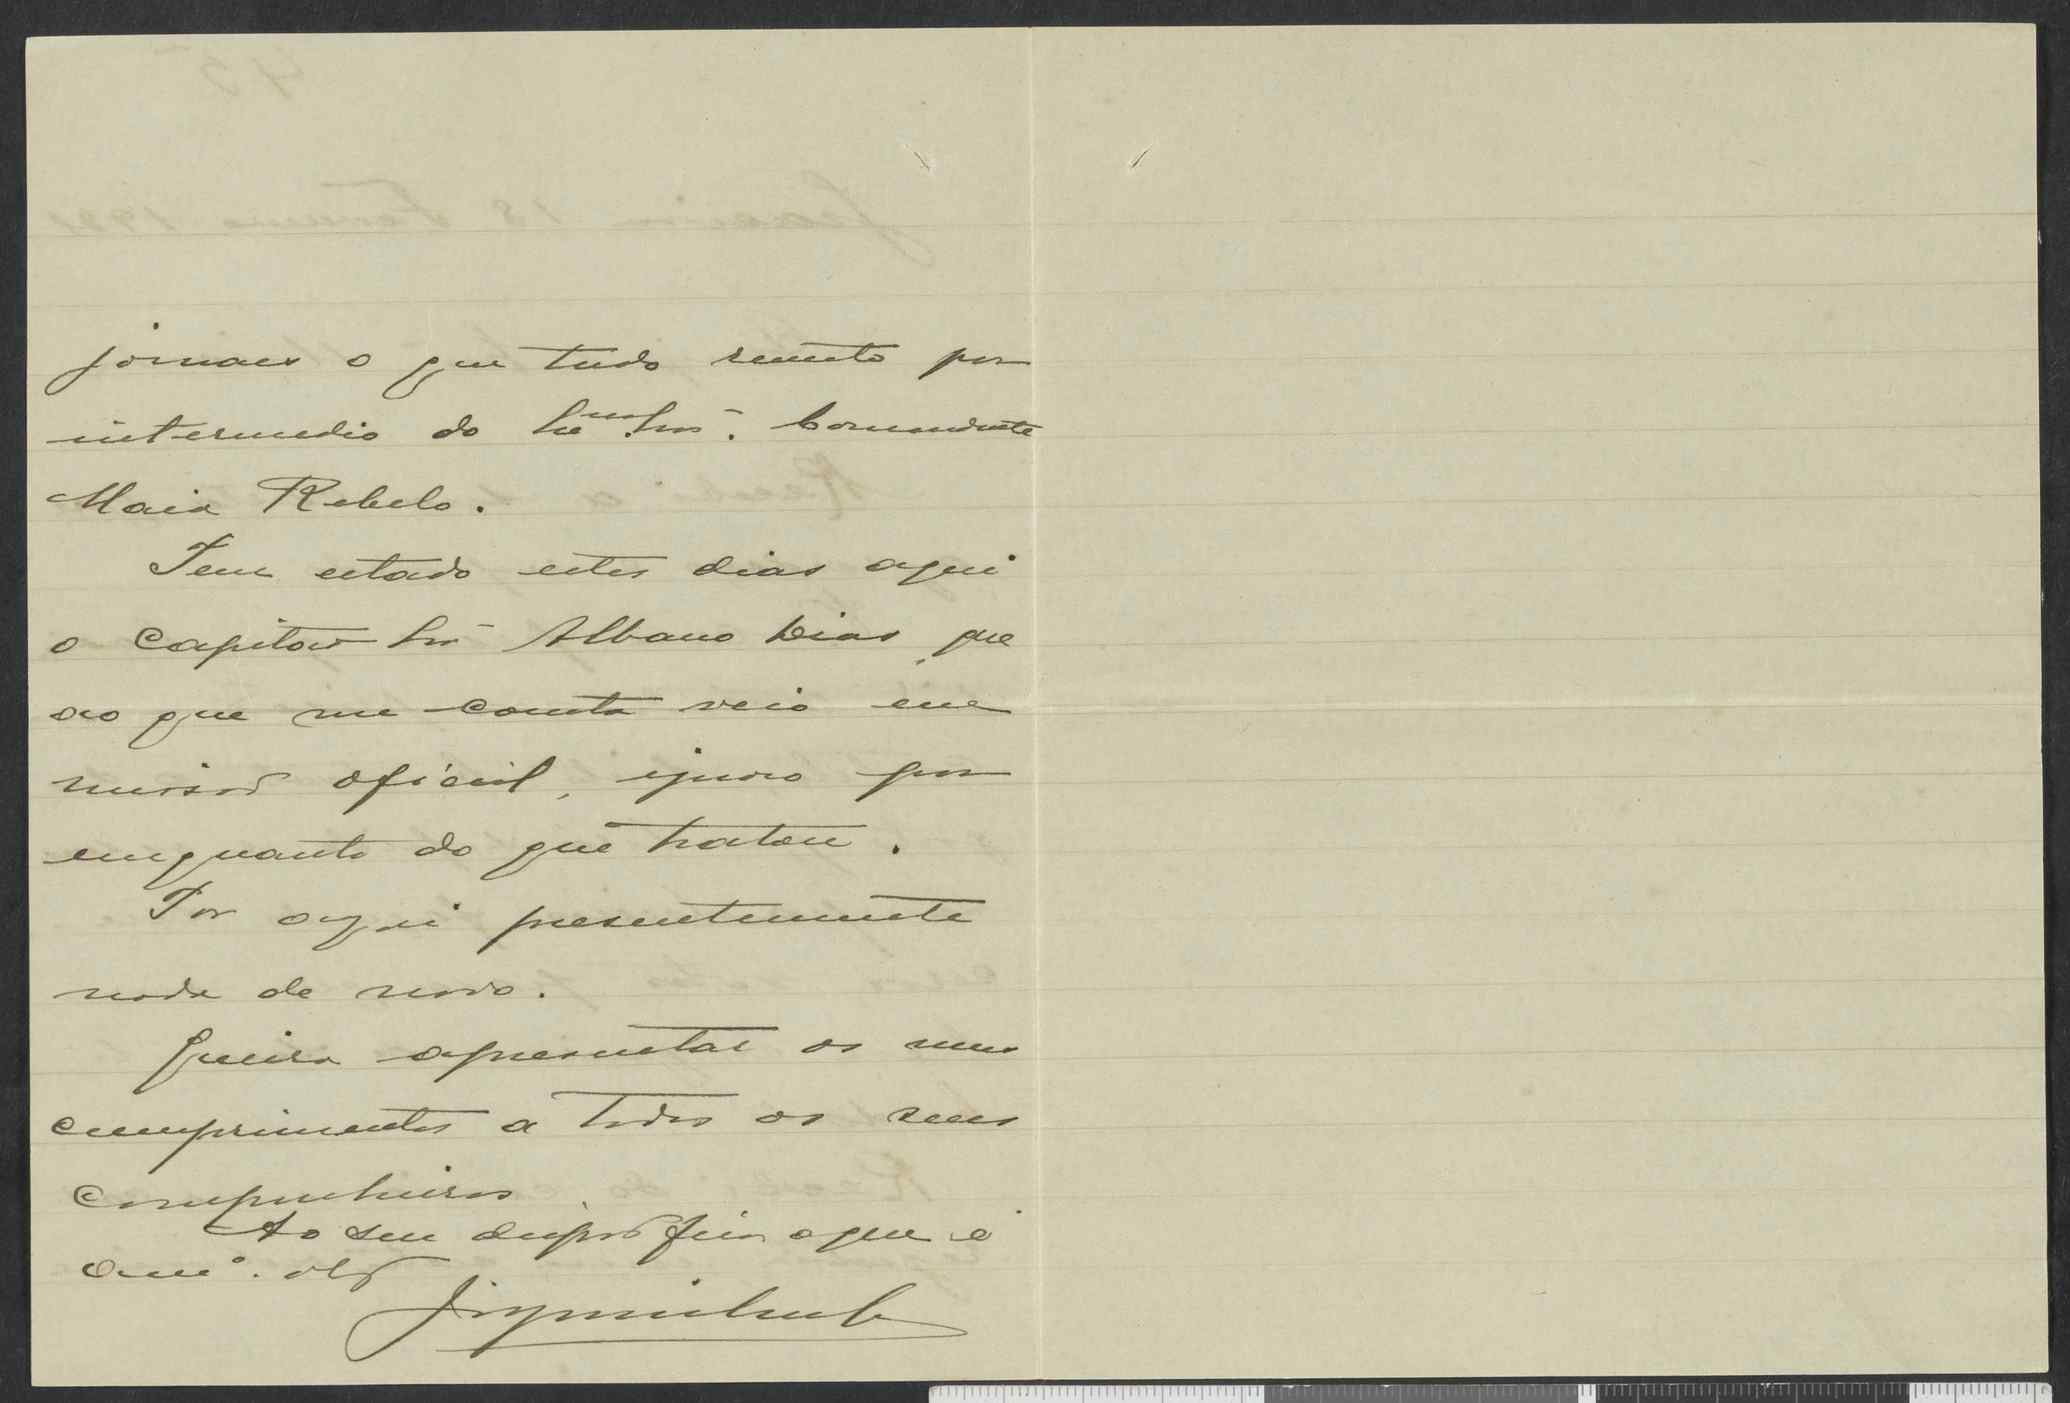 jornaes o que tudo remeto por
intermedio do Exmo Snr. Comandante
Maia Rebelo.
Tem estado estes dias aqui
o Capitão Snr Albano Dias, que
ao que me consta veio em
missão oficial, ignoro por
emquanto do que tratou.
Por aqui presentemente
nada de novo.
Queira apresentar os meus
cumprimentos a todos os seus
companheiros.
Ao seu dispôr fica o que é
Amo. obdo